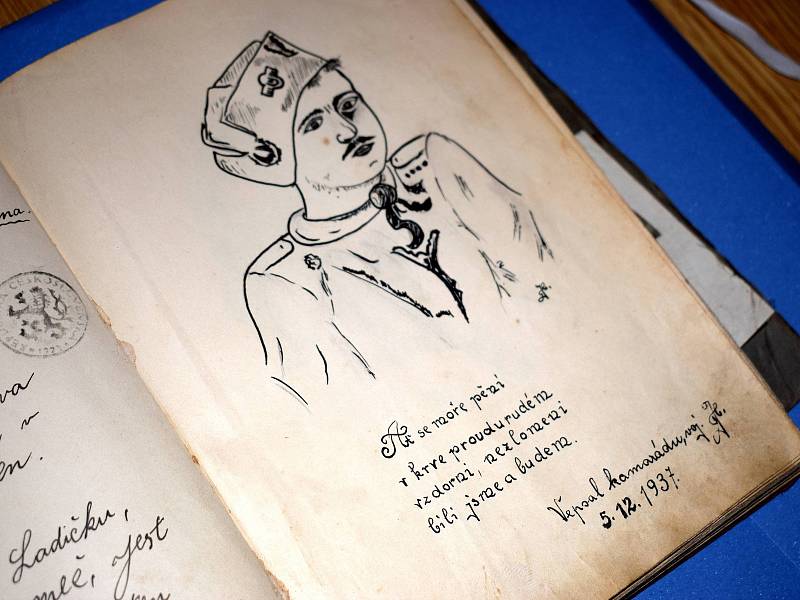 na.
va
v
en.
Ladičku,
meč, Jest
Ať se moře pění
v krve proudu rudém
vzdorni, nezlomeni
bili jsme a budem.
Vepsal kamarádu, voj.
5.12.1937.